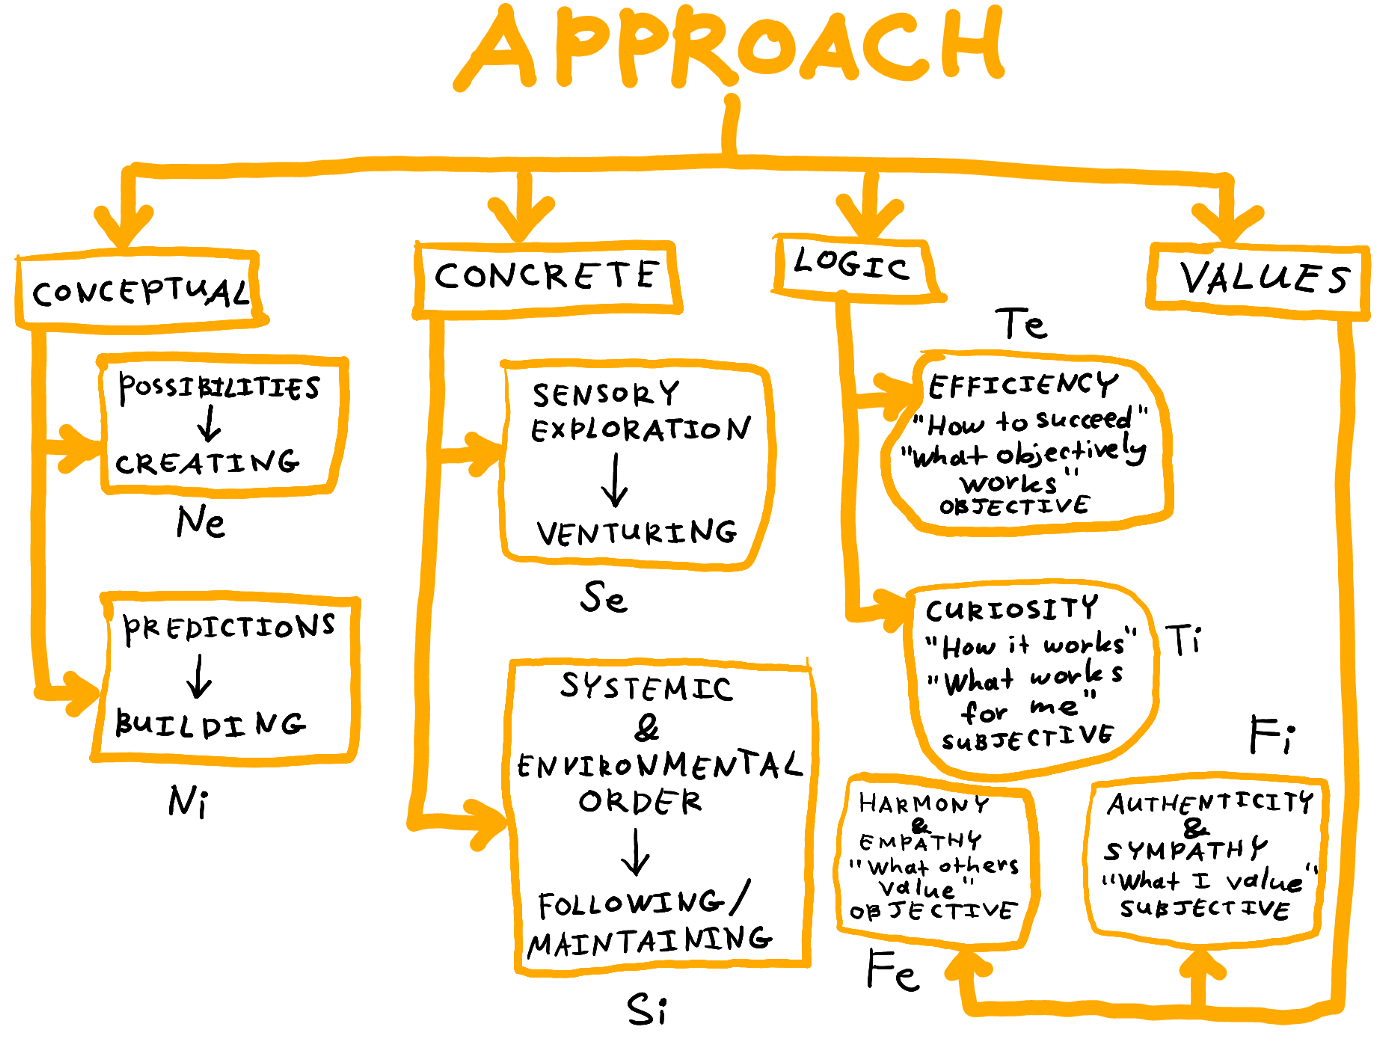 APPROACH
CONCEPTUAL
POSSIBILITIES
CREATING
Ne
PREDICTIONS
BUILDING
Ni
CONCRETE
SENSORY
EXPLORATION
VENTURING
Se
SYSTEMIC
&
ENVIRONMENTAL
ORDER
FOLLOWING/
MAINTAINING
Si
LOGIC
Te
EFFICIENCY
"How to succeed"
"What objectively
works"
OBJECTIVE
CURIOSITY
"How it works"
"What works
for me"
SUBJECTIVE
Ti
VALUES
HARMONY
&
EMPATHY
"What others
value"
OBJECTIVE
Fe
Fi
AUTHENTICITY
&
SYMPATHY
"What I value"
SUBJECTIVE